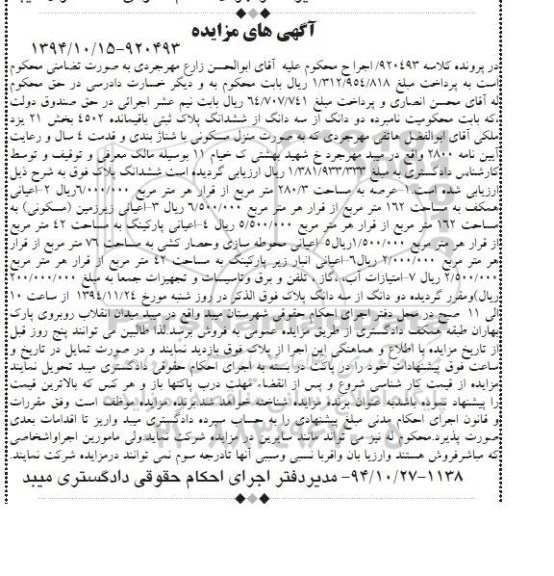 آگهی های مزایده
۱۳۹۴/۱۰/۱۵-۹۲۰۴۹۳
در پرونده کلاسه ۹۲۰۴۹۳/ اجرا ح محکوم علیه آقای ابوالحسن زارع مهرجردی به صورت تضامنی محکوم
است به پرداخت مبلغ ۱/۳۱۲/۹۵۴/۸۱۸ ریال بابت محکوم به و دیگر خسارت دادرسی در حق محکوم
له آقای محسن انصاری و پرداخت مبلغ ۶۴/۷۰۷/۷۴۱ ریال بابت نیم عشر اجرائی در حق صندوق دولت
،که بابت محکومیت نامبرده دو دانگ از سه دانگ از ششدانگ پلاک ثبتی باقیمانده ۴۵۰۲ بخش ۲۱ یزد
ملکی آقای ابوالفضل هاتفی مهرجردی که به صورت منزل مسکونی با شناژ بندی و قدمت ۴ سال و رعایت
آیین نامه ۲۸۰۰ واقع در میبد مهرجرد خ شهید بهشتی ک خیام ۱۱ بوسیله مالک معرفی و توقیف و توسط
کارشناس دادگستری به مبلغ ۱/۳۸۱/۹۳۳/۳۳۳ ریال ارزیابی گردیده است ششدانگ پلاک فوق به شرح ذیل
ارزیابی شده است ۱-عرصه به مساحت ۲۸۰/۳ متر مربع از قرار هر متر مربع ۶/۰۰۰/۰۰۰ریال ۲-اعیانی
همکف به مساحت ۱۶۲ متر مربع از قرار هر متر مربع ۶/۵۰۰/۰۰۰ ریال ۳-اعیانی زیرزمین (مسکونی) به
مساحت ۱۶۲ متر مربع از قرار هر متر مربع ۵/۵۰۰/۰۰۰ ریال ۴-اعیانی پارکینگ به مساحت ۴۲ متر مربع
از قرار هر متر مربع ۱/۵۰۰/۰۰۰ریال۵-اعیانی محوطه سازی وحصار کشی به مساحت ۷۶ متر مربع از قرار
هر متر مربع ۲/۰۰۰/۰۰۰ ریال۶-اعیانی انبار زیر پارکینگ به مساحت ۴۲ متر مربع از قرار هر متر مربع
۲/۵۰۰/۰۰۰ ریال ۷-امتیازات آب، گاز، تلفن و برق وتاسیسات و تجهیزات جمعا به مبلغ ۲۰۰/۰۰۰/۰۰۰
ریال)ومقرر گردیده دو دانگ از سه دانگ پلاک فوق الذکر در روز شنبه مورخ ۱۳۹۴/۱۱/۲۴ از ساعت ۱۰
الی ۱۱ صبح در محل دفتر اجرای احکام حقوقی شهرستان میبد واقع در میبد میدان انقلاب روبروی پارک
بهاران طبقه همکف دادگستری از طریق مزایده عمومی به فروش برسد.لذا طالبین می توانند پنج روز قبل
از تاریخ مزایده با اطلاع و هماهنگی این اجرا از پلاک فوق بازدید نمایند و در صورت تمایل در تاریخ و
ساعت فوق پیشنهادات خود را در پاکت در بسته به اجرای احکام حقوقی دادگستری میبد تحویل نمایند
مزایده از قیمت کار شناسی شروع و پس از انقضاء مهلت درب پاکتها باز و هر کس که بالاترین قیمت
را پیشنهاد نموده باشدبه عنوان برنده مزایده شناخته خواهد شد.برنده مزایده موظف است وفق مقررات
و قانون اجرای احکام مدنی مبلغ پیشنهادی را به حساب سپرده دادگستری میبد واریز تا اقدامات بعدی
صورت پذیرد.محکوم له نیز می تواند مانند سایرین در مزایده شرکت نماید ولی مامورین اجراواشخاصی
که مباشرفروش هستند وارزیا بان واقربا نسبی وسببی آنها تادرجه سوم نمی توانند درمزایده شرکت نمایند.
۹۴/۱۰/۲۷-۱۱۳۸- مدیردفتر اجرای احکام حقوقی دادگستری میبد